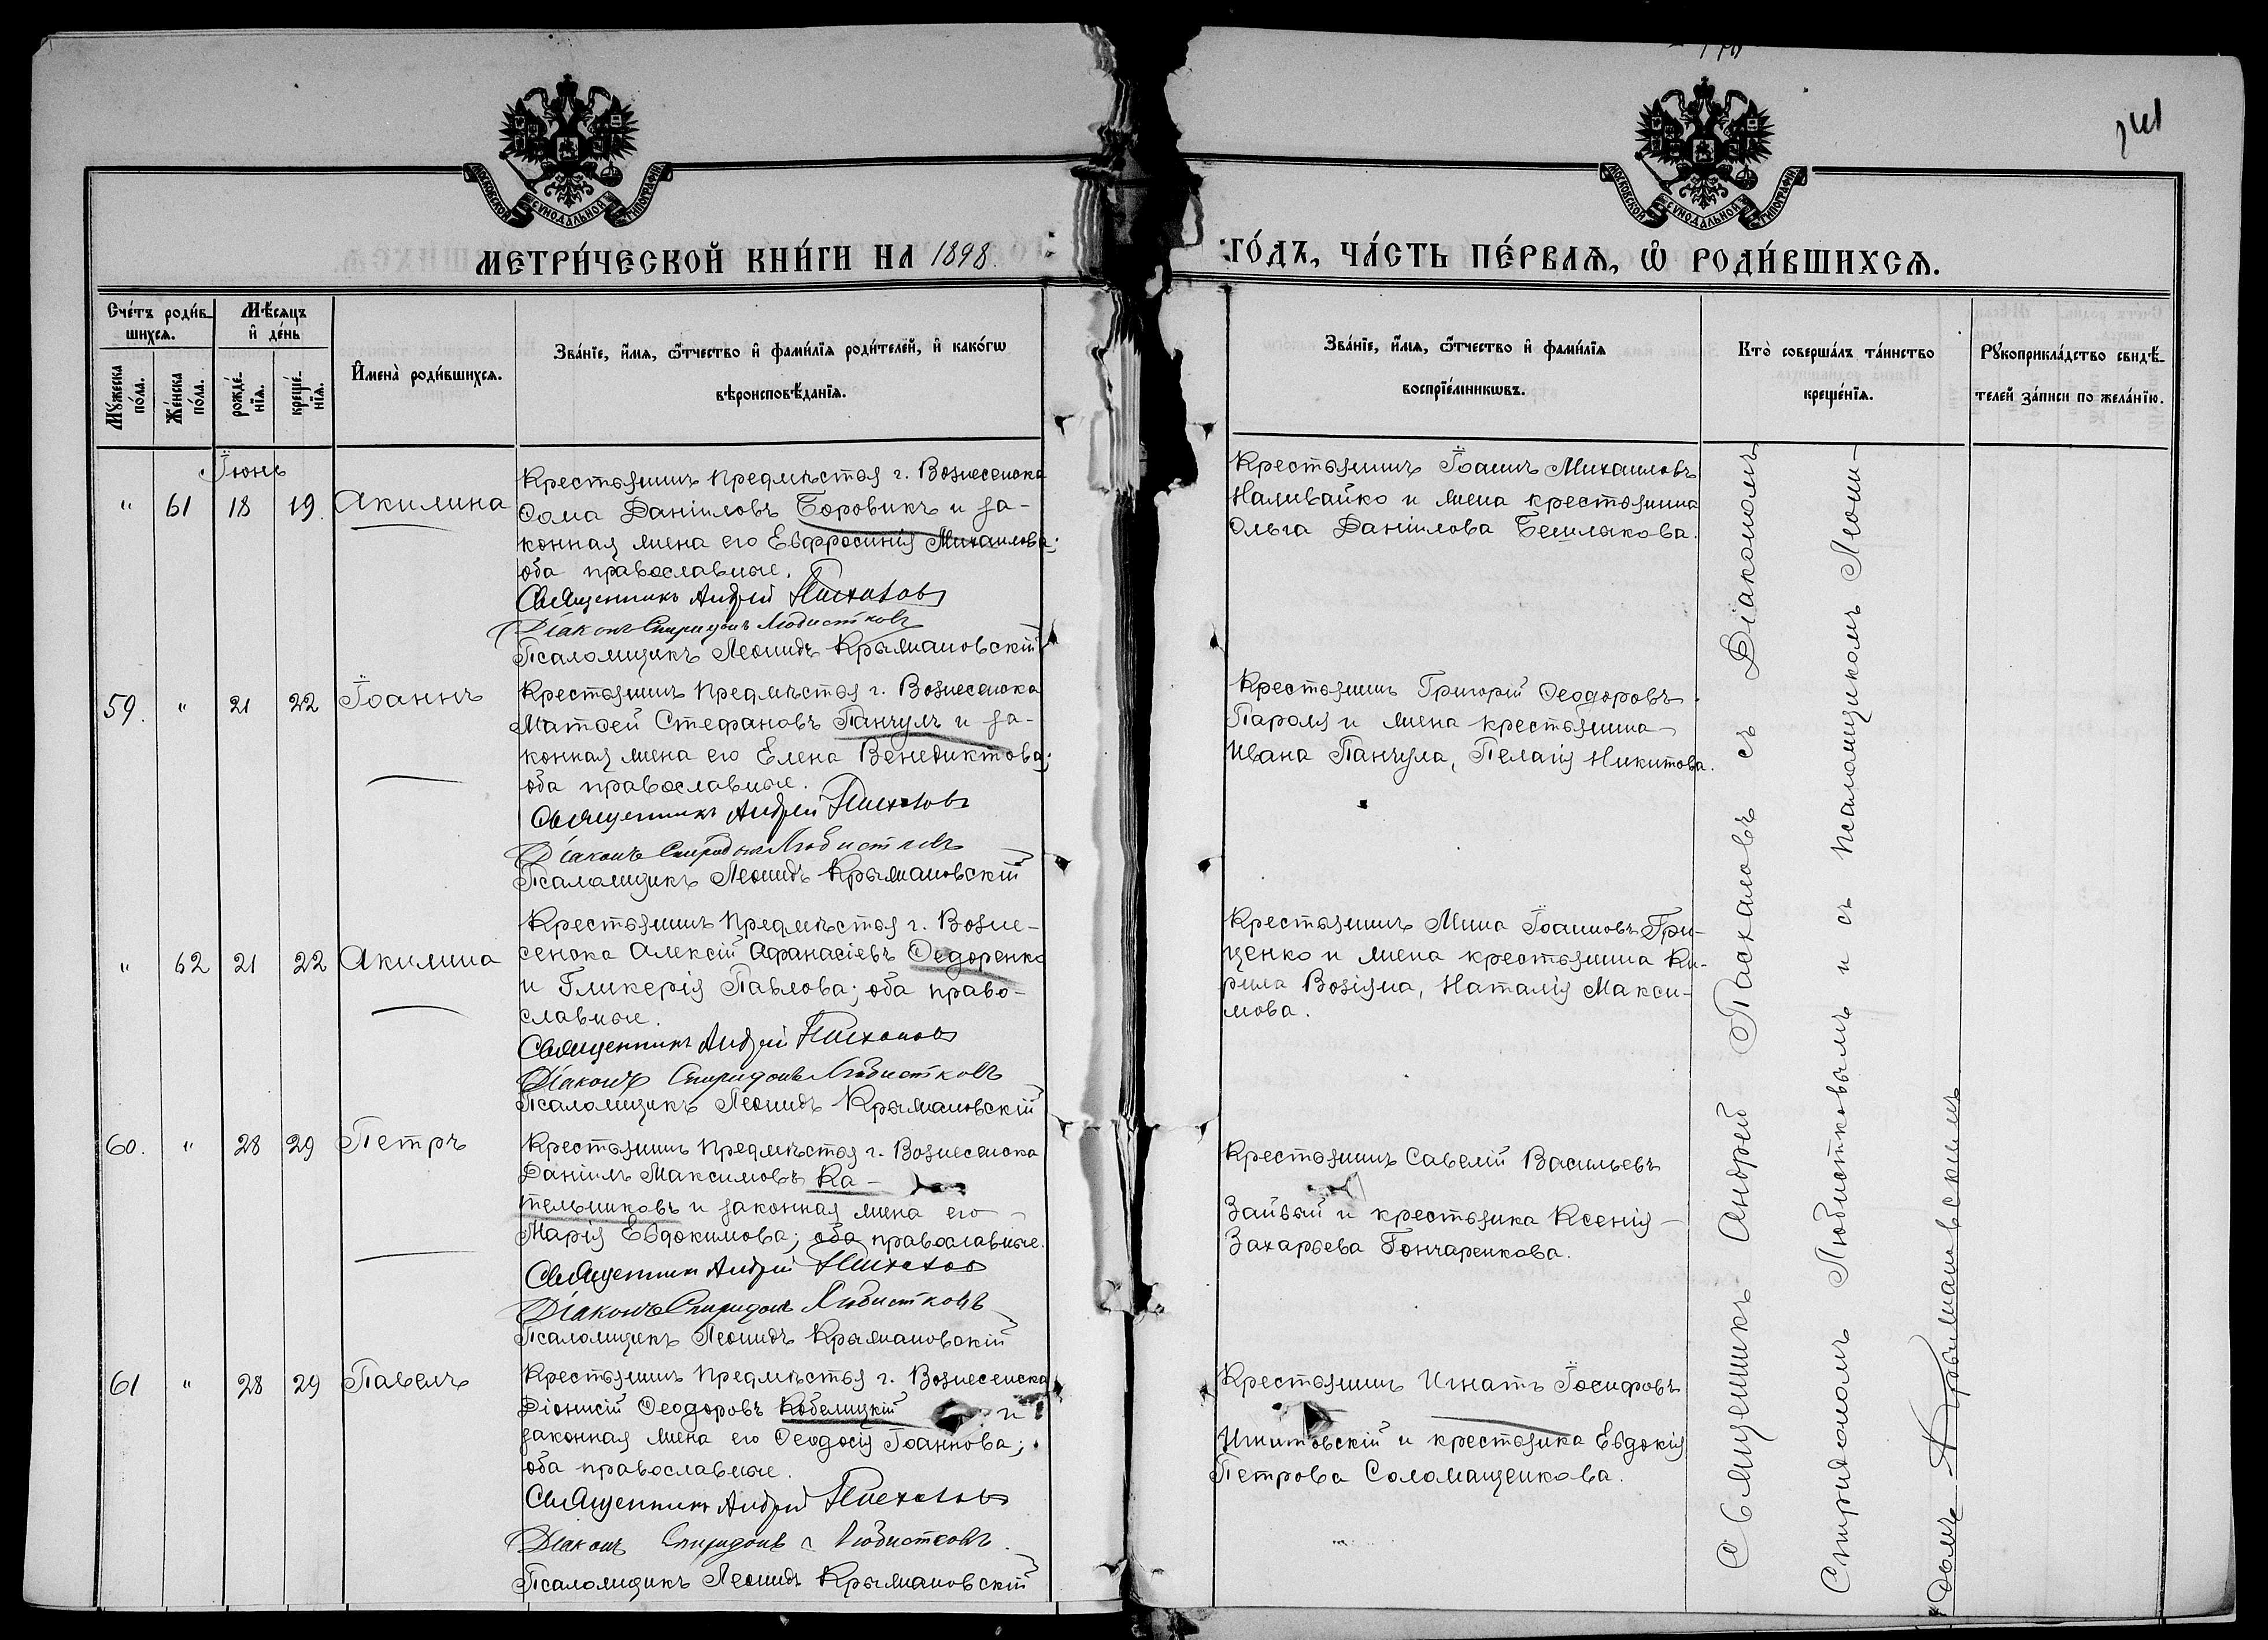 741
МОСКОВСКОЙ СУНОДАЛЬНОЙ ТИПОГРАФІИ
МОСКОВСКОЙ СУНОДАЛЬНОЙ ТИПОГРАФІИ
МЕТРИ́ЧЕСКОЙ КНИ́ГИ НА 1898
ГО́ДЪ, ЧА́СТЬ ПЕ́РВАѦ, Ѽ РОДИ́ВШИХСѦ.
Сче́тъ роди́в-
шихсѧ.
Мꙋ́жеска по́ла.
Же́нска по́ла.
Мѣ́сѧцъ
и҆ де́нь
рожде́-
нїѧ.
креще́-
нїѧ.
И҆мена̀ роди́вшихсѧ.
Зва́нїе, и҆́мѧ, ѻ҆́тчество и҆ фами́лїѧ роди́телей, и҆ како́гѡ
вѣроисповѣ́данїѧ.
Зва́нїе, и҆́мѧ, ѻ҆́тчество и҆ фами́лїѧ
воспрїе́мникѡвъ.
Кто̀ соверша́лъ та́инство
креще́нїѧ.
Рꙋкоприкла́дство свидѣ́-
телей за́писи по жела́нїю.
Іюнь
" 61 18 19. Акилина
Крестьянинъ предмѣстья г. Вознесенска
Ѳома Даніиловъ Боровикъ и за-
конная жена его Евфросинія Михаилова;
оба православные.
Священникъ Андрей Пасхаловъ
Діаконъ Спиридонъ Любистковъ
Псаломщикъ Леонидъ Крыжановскій
Крестьянинъ Іоаннъ Михаиловъ
Наливайко и жена крестьянина
Ольга Даніилова Бешлякова.
59. " 21 22 Іоаннъ
Крестьянинъ предмѣстья г. Вознесенска
Матѳей Стефановъ Панчулъ и за-
конная жена его Елена Венедиктова;
оба православные.
Священникъ Андрей Пасхаловъ
Діаконъ Спиридонъ Любистковъ
Псаломщикъ Леонидъ Крыжановскій
Крестьянинъ Григорій Ѳеодоровъ
Пароля и жена крестьянина
Ивана Панчула, Пелагія Никитова.
" 62 21 22 Акилина
Крестьянинъ предмѣстья г. Возне-
сенска Алексій Афанасіевъ Ѳедоренко
и Гликерія Павлова; оба право-
славные.
Священникъ Андрей Пасхаловъ
Діаконъ Спиридонъ Любистковъ
Псаломщикъ Леонидъ Крыжановскій
Крестьянинъ Мина Іоанновъ Гри-
ценко и жена крестьянина Ки-
рила Возіяна, Наталія Макси-
мова.
60. " 28 29 Петръ
Крестьянинъ предмѣстья г. Вознесенска
Даніилъ Максимовъ Ка-
тельниковъ и законная жена его
Марія Евдокимова; оба православные.
Священникъ Андрей Пасхаловъ
Діаконъ Спиридонъ Любистковъ
Псаломщикъ Леонидъ Крыжановскій
Крестьянинъ Савелій Васильевъ
Зайвый и крестьянка Ксенія
Захарьева Гончаренкова.
61 " 28 29 Павелъ
Крестьянинъ предмѣстья г. Вознесенска
Діонисій Ѳеодоровъ Кобелицкій и
законная жена его Ѳеодосія Іоаннова;
оба православные.
Священникъ Андрей Пасхаловъ
Діаконъ Спиридонъ Любистковъ.
Псаломщикъ Леонидъ Крыжановскій
Крестьянинъ Игнатъ Іосифовъ
и крестьянка Евдокія
Петрова Соломащенкова.
Священникъ Андрей Пасхаловъ съ Діакономъ
Спиридономъ Любистковымъ и съ псаломщикомъ Леони-
домъ Крыжановскимъ